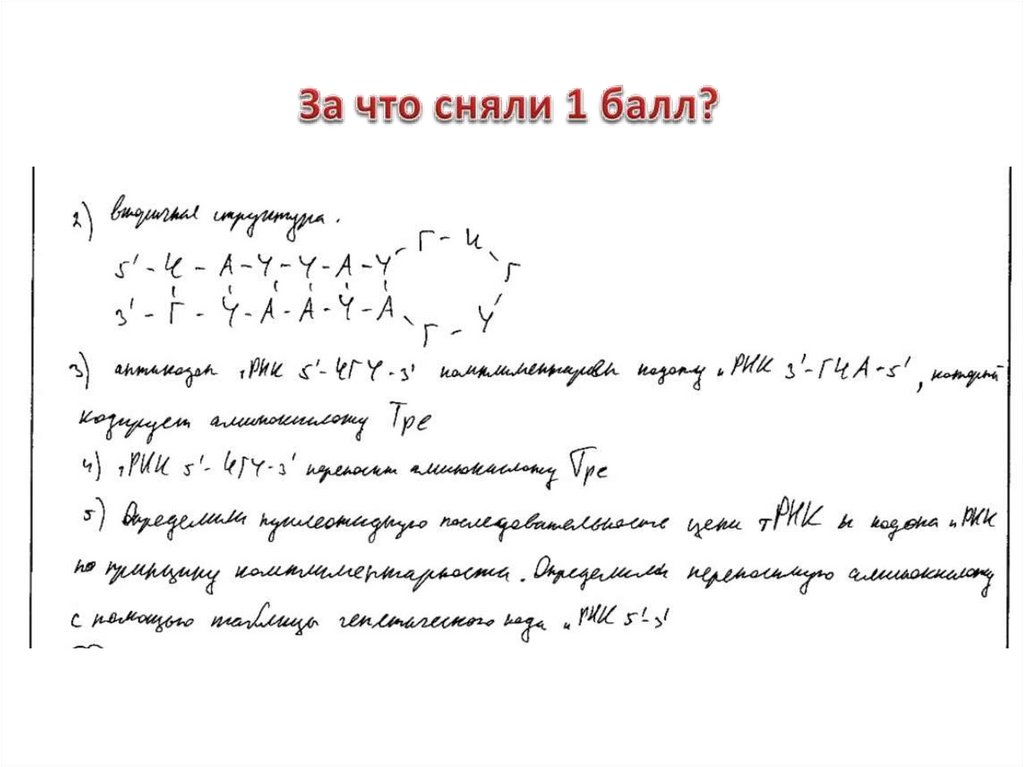 За что сняли 1 балл?
2) вторичная структура.
Г - Ц
5' - Ц - А - У - У - А - У Г
3' - Г - У - А - А - У - А У
Г -
3) антикодон тРНК 5'-ЦГУ-3' комплиментарен кодону иРНК 3'-ГЦА-5', который
кодирует аминокислоту Тре
4) тРНК 5'-ЦГУ-3' переносит аминокислоту Тре
5) Определили нуклеотидную последовательность цепи тРНК и кодона иРНК
по принципу комплиментарности. Определили переносимую аминокислоту
с помощью таблицы генетического кода иРНК 5'-3'